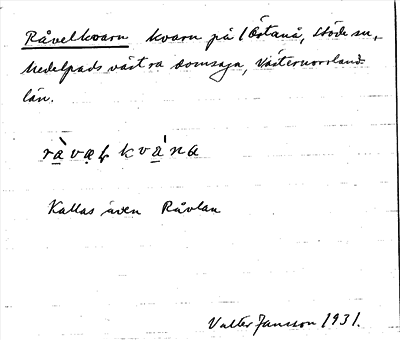 Råvelkvarn kvarn på Östanå, Stöde sn,
Medelpads västra domsaga, Västernorrlands
län.
rå̀vaļkvá̊na
Kallas även Råvlan
Valter Jansson 1931.